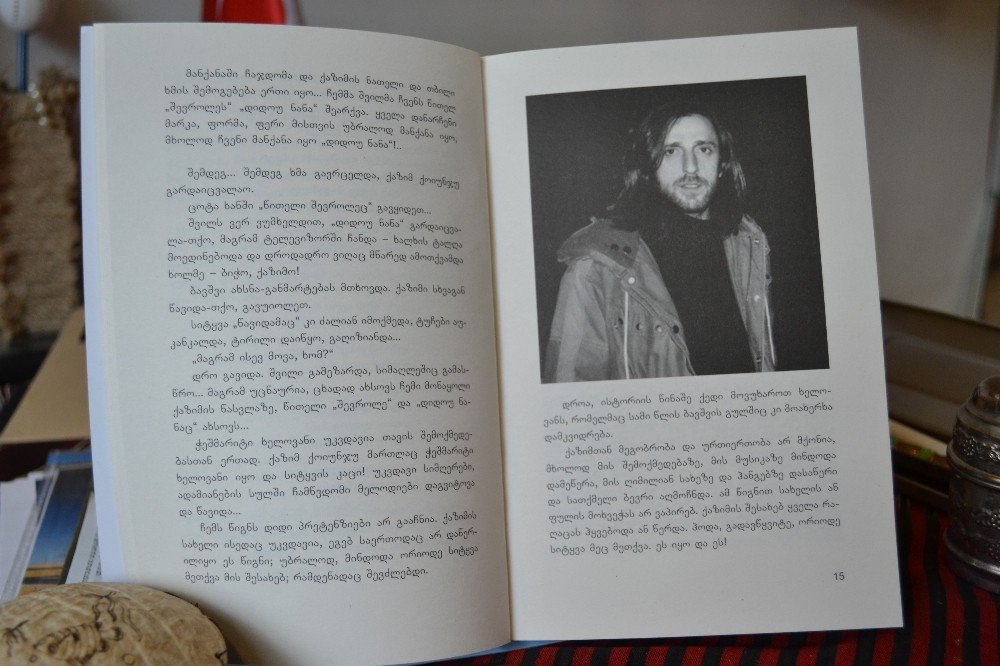 მანქანაში ჩაჯდომა და ქაზიმის ნათელი და თბილი
ხმის შემოგებება ერთი იყო... ჩემმა შვილმა ჩვენს წითელ
„შევროლეს“ „დიდოუ ნანა“ შეარქვა. ყველა დანარჩენი
მარკა, ფორმა, ფერი მისთვის უბრალოდ მანქანა იყო,
მხოლოდ ჩვენი მანქანა იყო „დიდოუ ნანა“!..
შემდეგ... შემდეგ ხმა გავრცელდა, ქაზიმ ქოიუნჯუ
გარდაიცვალაო.
ცოტა ხანში „წითელი შევროლეც“ გავყიდეთ...
შვილს ვერ ვუმხელდით, „დიდოუ ნანა“ გარდაიცვა-
ლა-თქო, მაგრამ ტელევიზორში ჩანდა – ხალხის ტალღა
მოედინებოდა და დროდადრო ვიღაც მწარედ ამოთქვამდა
ხოლმე – ბიჭო, ქაზიმო!
ბავშვი ახსნა-განმარტებას მთხოვდა. ქაზიმი სხვაგან
წავიდა-თქო, გავუიოლეთ.
სიტყვა „წავიდამაც“ კი ძალიან იმოქმედა, ტუჩები აუ-
კანკალდა, ტირილი დაიწყო, გაღიზიანდა...
„მაგრამ ისევ მოვა, ხომ?“
დრო გავიდა. შვილი გამეზარდა, სიმაღლეშიც გამას-
წრო... მაგრამ უცნაურია, ცხადად ახსოვს ჩემი მონაყოლი
ქაზიმის წასვლაზე, წითელი „შევროლე“ და „დიდოუ ნა-
ნაც“ ახსოვს...
ჭეშმარიტი ხელოვანი უკვდავია თავის შემოქმედე-
ბასთან ერთად. ქაზიმ ქოიუნჯუ მართლაც ჭეშმარიტი
ხელოვანი იყო და სიტყვის კაცი! უკვდავი სიმღერები,
ადამიანების სულში ჩამწვდომი მელოდიები დაგვიტოვა
და წავიდა...
ჩემს წიგნს დიდი პრეტენზიები არ გააჩნია. ქაზიმის
სახელი ისედაც უკვდავია, ეგებ საერთოდაც არ დაწერ-
ილიყო ეს წიგნი; უბრალოდ, მინდოდა ორიოდე სიტყვა
მეთქვა მის შესახებ; რამდენადაც შევძლებდი.
დროა, ისტორიის წინაშე ქედი მოვუხაროთ ხელო-
ვანს, რომელმაც სამი წლის ბავშვის გულშიც კი მოახერხა
დამკვიდრება.
ქაზიმთან მეგობრობა და ურთიერთობა არ მქონია,
მხოლოდ მის შემოქმედებაზე, მის მუსიკაზე მინდოდა
დამეწერა, მის ღიმილიან სახეზე და ჰანგებზე დასაწერი
და სათქმელი ბევრი აღმოჩნდა. ამ წიგნით სახელის ან
ფულის მოხვეჭას არ ვაპირებ. ქაზიმის შესახებ ყველა რა-
ღაცას ჰყვებოდა ან წერდა. ჰოდა, გადავწყვიტე, ორიოდე
სიტყვა მეც მეთქვა. ეს იყო და ეს!
15